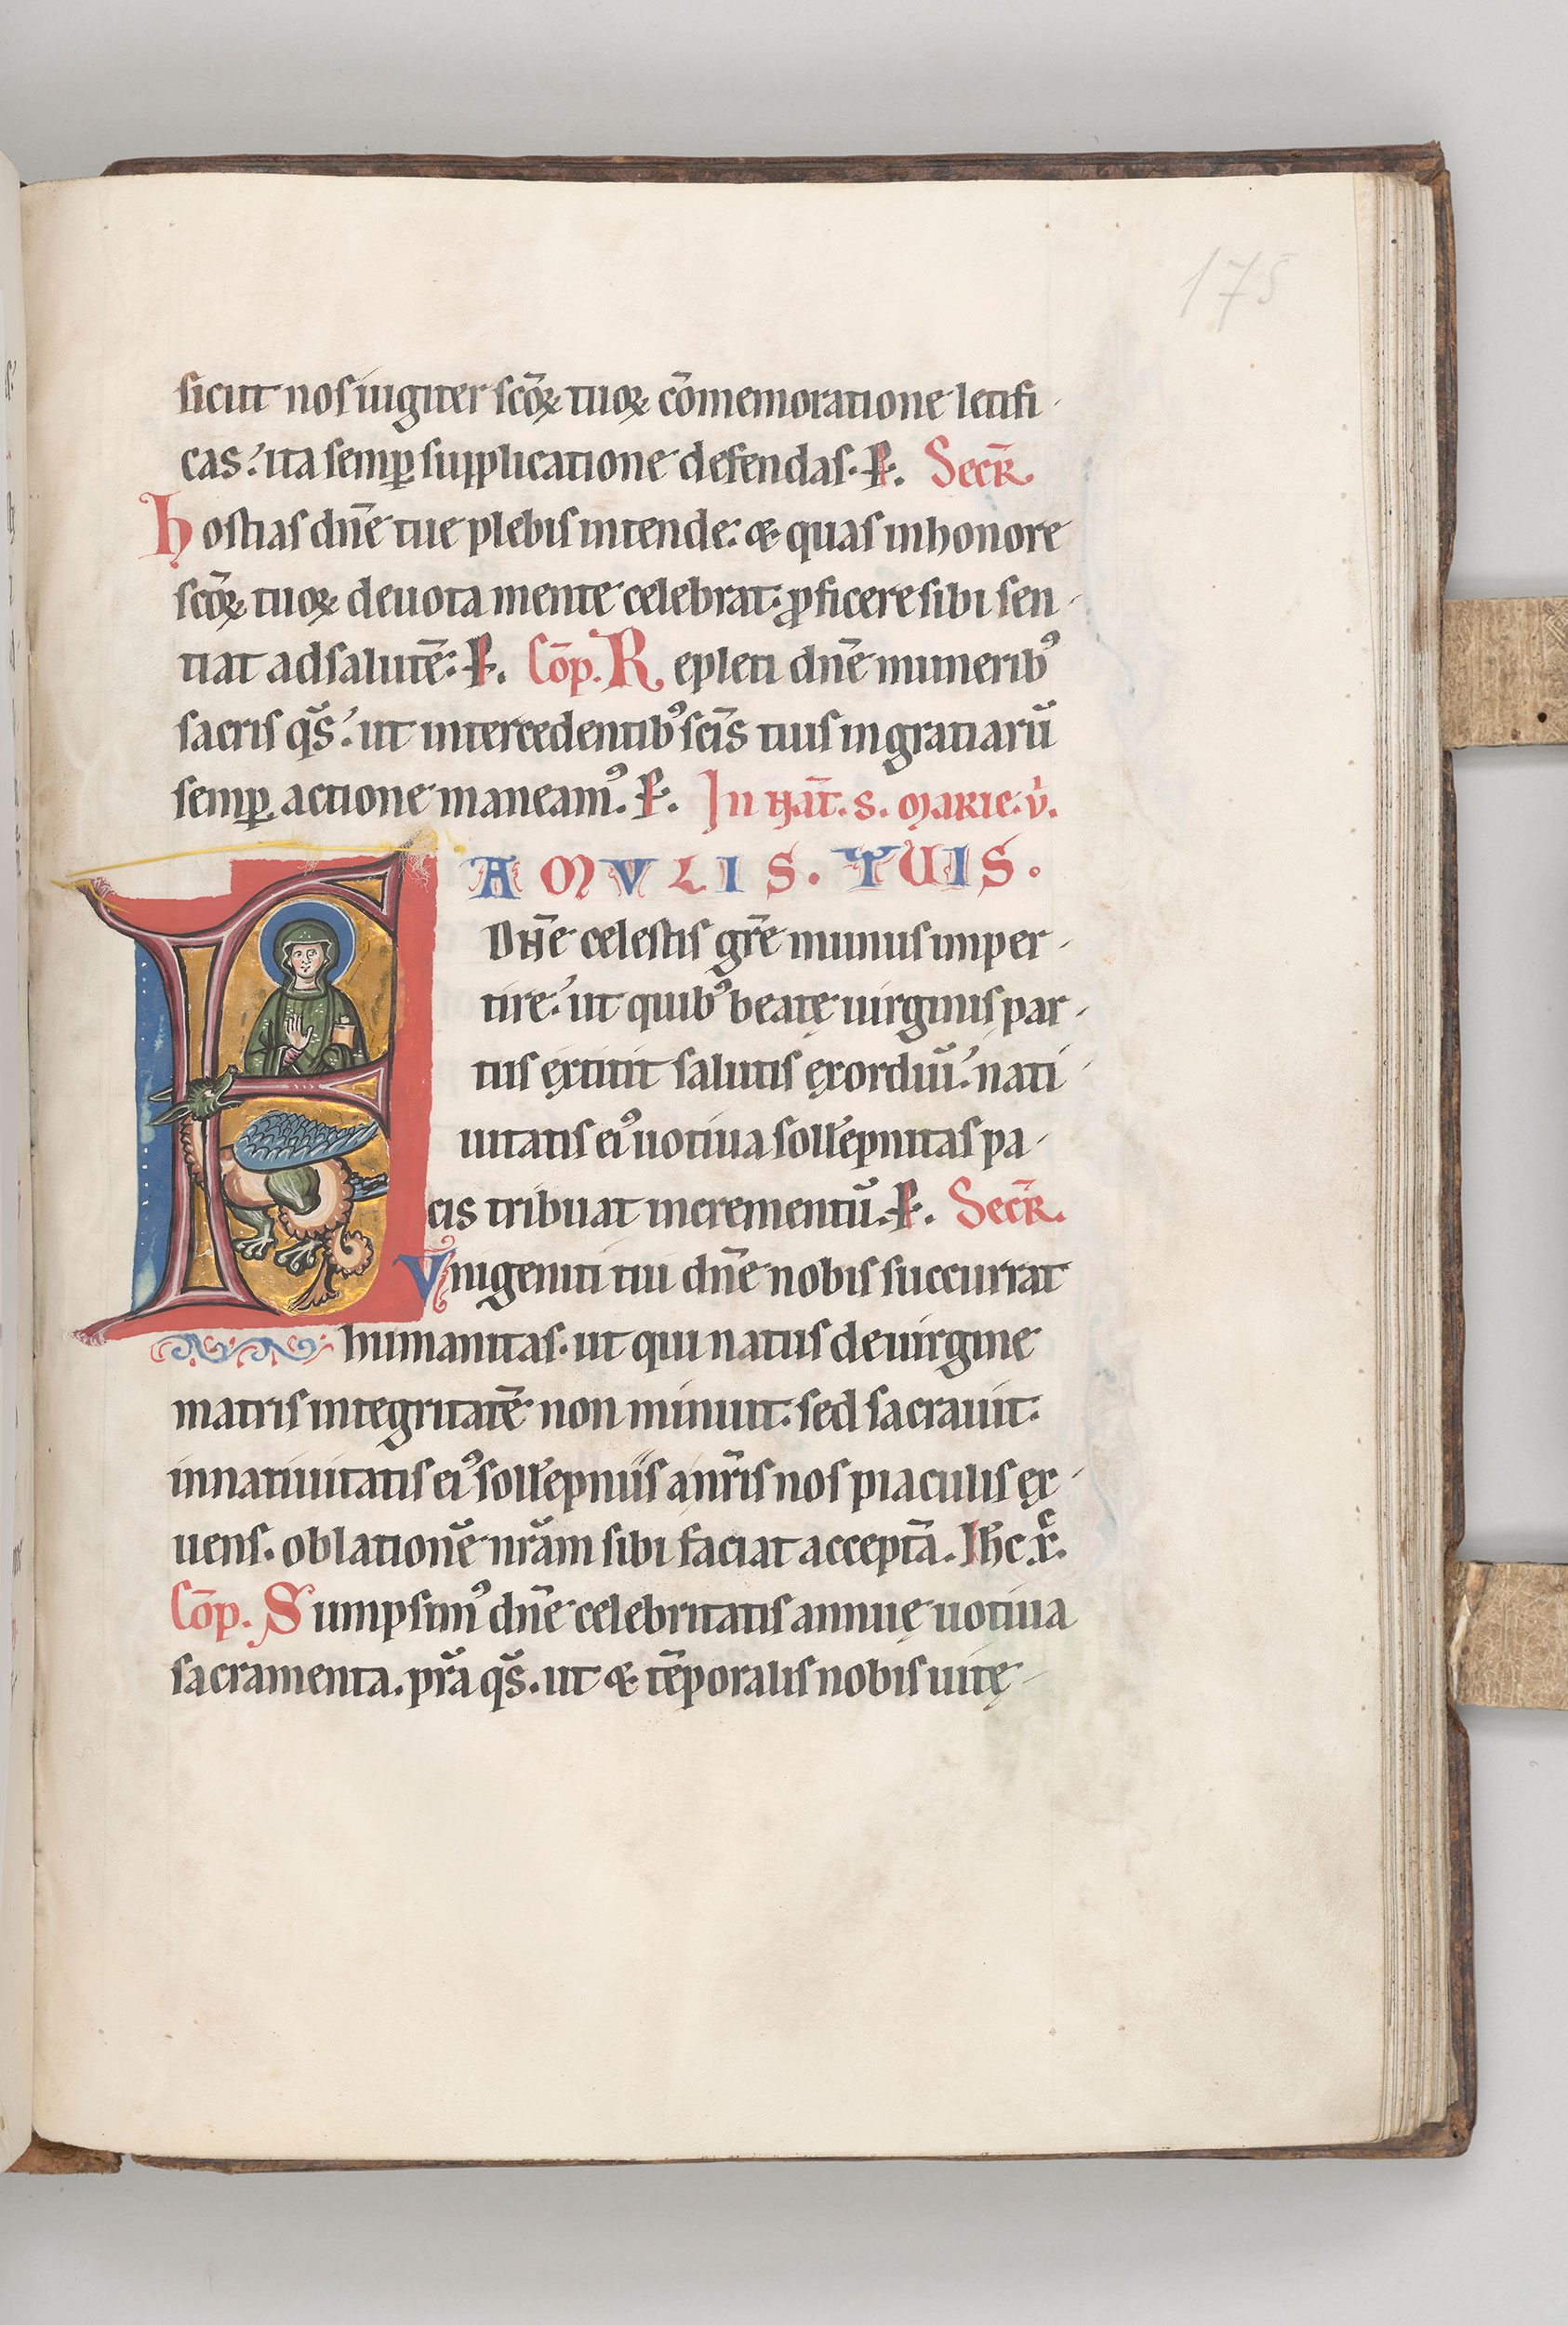 175
sicut nos iugiter scōꝝ tuoꝝ cōmemoratione letifi
cas: ita semꝑ supplicatione defendas. P. Secr̄
hostias dn̄e tue plebis intende: & quas in honore
scōꝝ tuoꝝ deuota mente celebrat: ꝓficere sibi sen
tiat ad salutē: P. Cōp. Repleti dn̄e munerib᾽
sacris qs̄: ut intercedentib᾽ scīs tuis in gratiarū
semꝑ actione maneam᾽. P. In nat̄. s. Marie. v.
FAMVLIS. TUIS.
Dn̄e celestis gr̄e munus imper
tire: ut quib᾽ beatę uirginis par
tus extitit salutis exordiū: nati
uitatis ei᾽ uotiua sollepnitas pa
cis tribuat incrementū. P. Secr̄.
Vnigeniti tui dn̄e nobis succurrat
humanitas. ut qui natus de uirgine
matris integritatē non minuit: sed sacrauit:
in natiuitatis ei᾽ sollepniis a nr̄is nos piaculis ex
uens. oblationē nrām sibi faciat acceptā. Ihc x̄.
Cōp. Sumpsim᾽ dn̄e celebritatis annuę uotiua
sacramenta. prā qs̄. ut & tēporalis nobis uitę